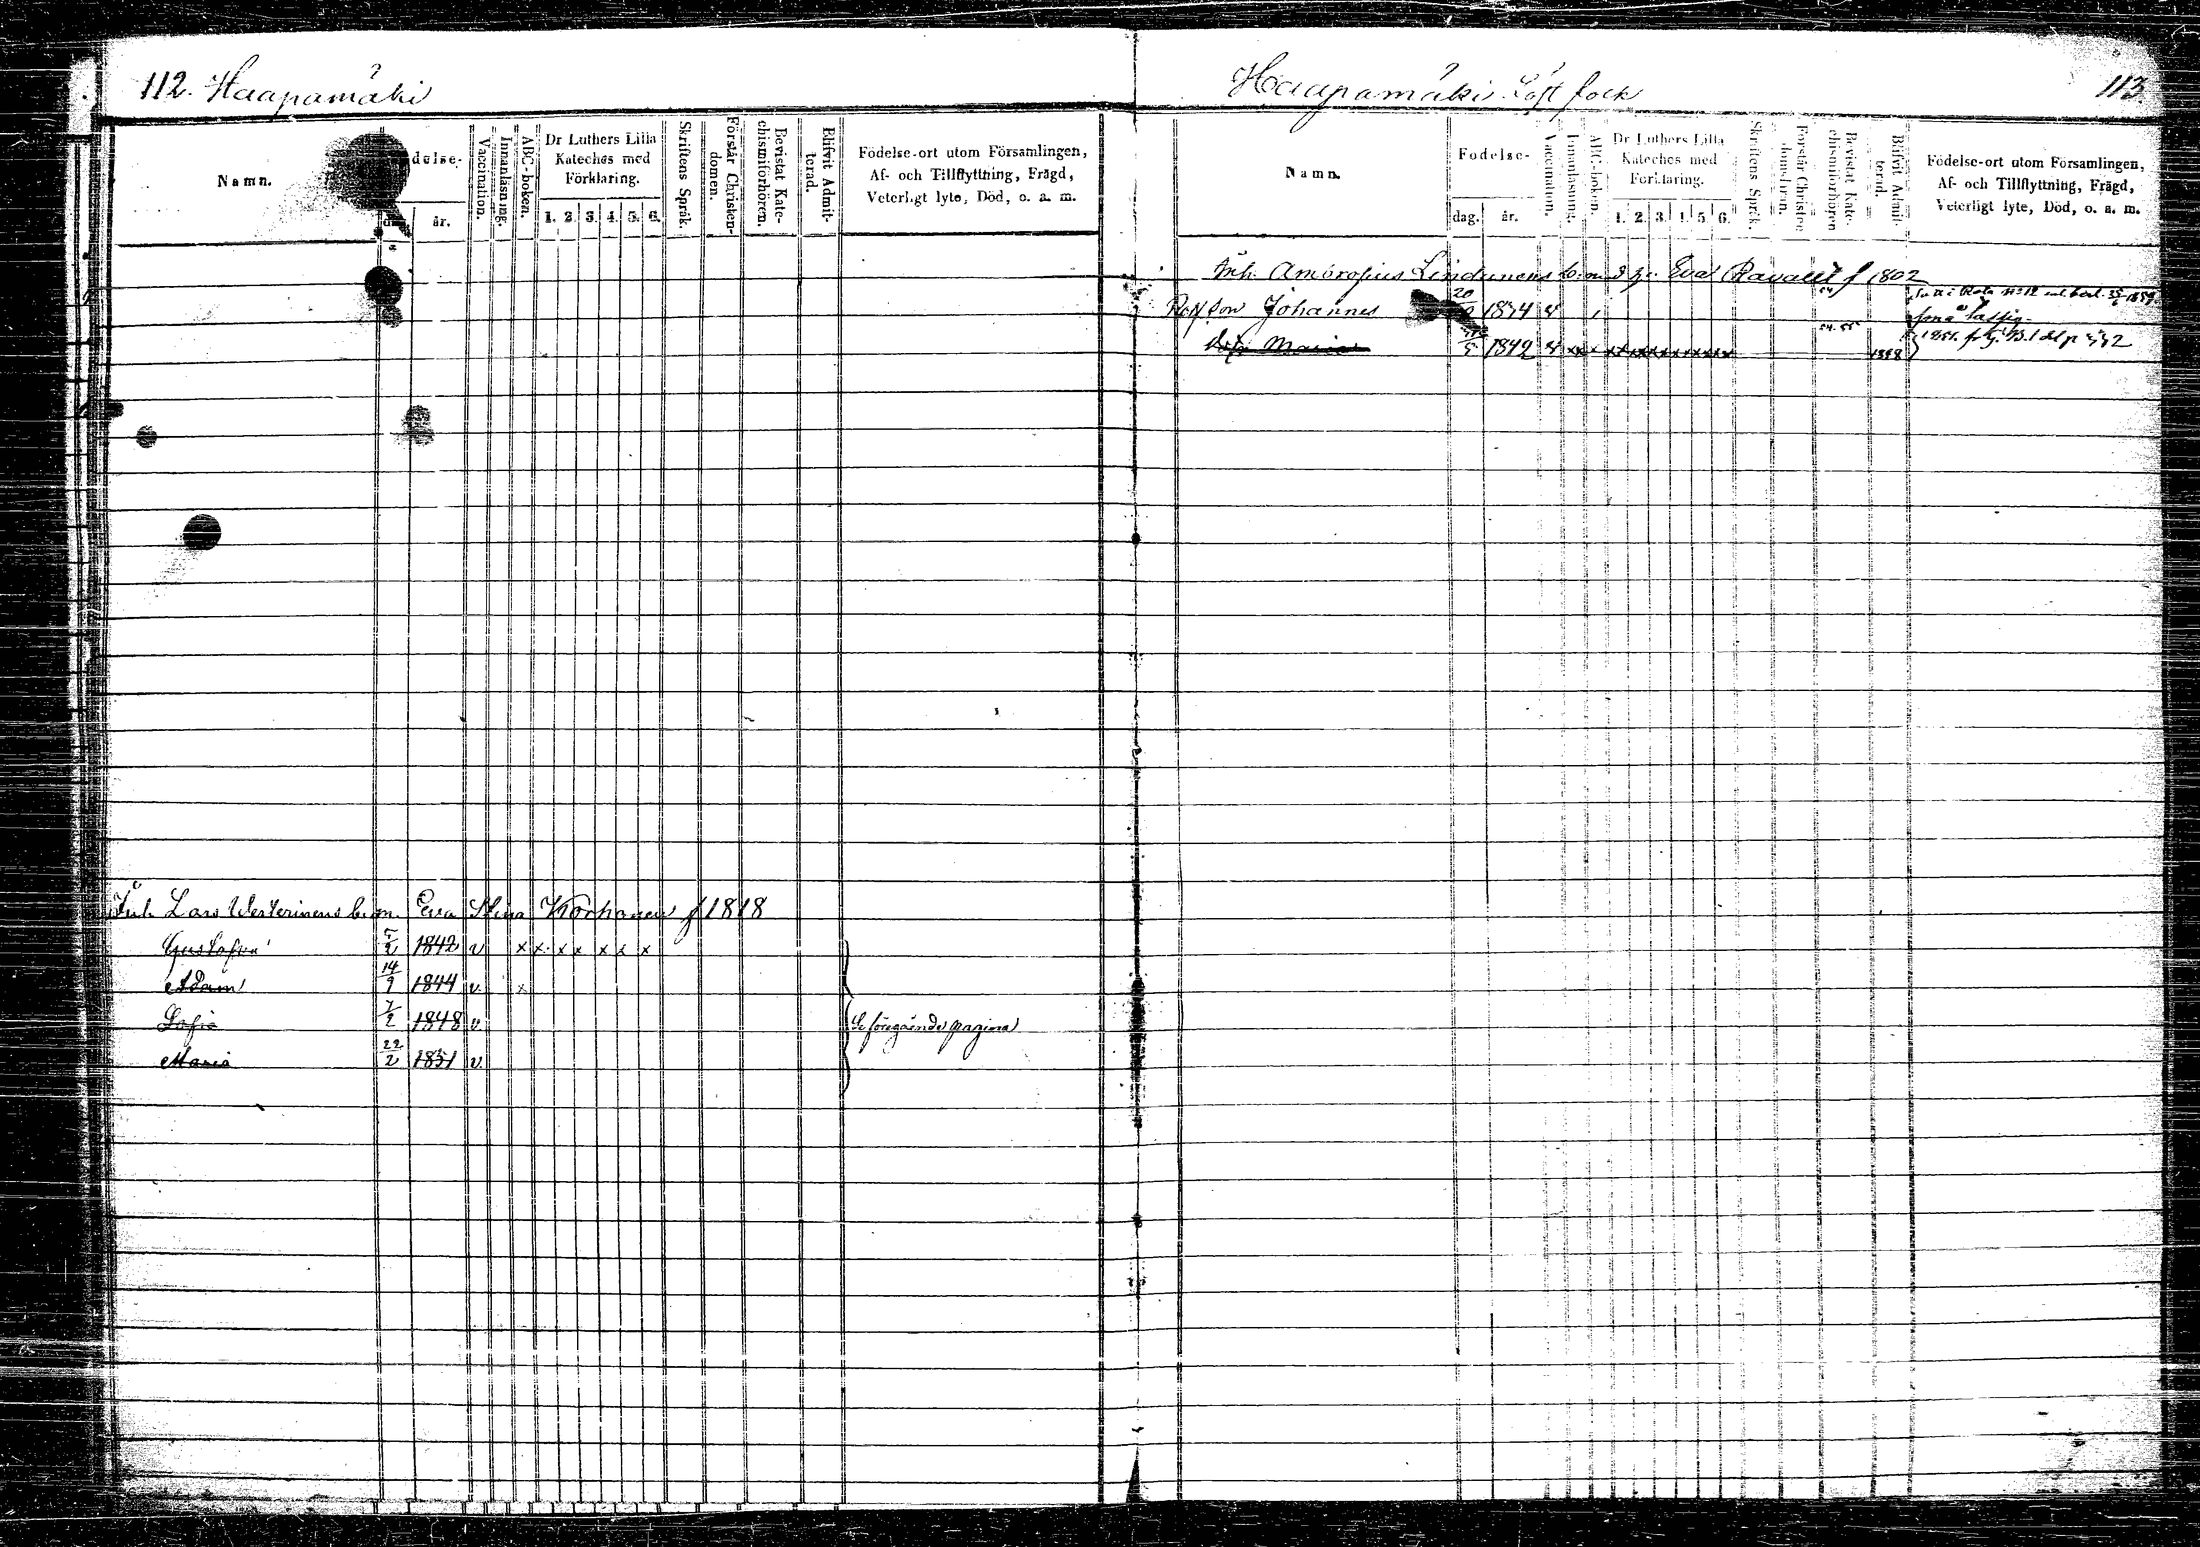 112. Haapamäki
Namn.
delse-
dag.
år.
Vaccination.
Innanläsning.
ABC-boken.
Dr Luthers Lilla
Kateches med
Förklaring.
1. 2. 3. 4. 5. 6.
Skriftens Språk.
Förstår Christen-
domen.
Bevistat Kate-
chismiförhören.
Blifvit Admit-
terad.
Födelse-ort utom Församlingen,
Af- och Tillflyttning, Frägd,
Veterligt lyte, Död, o. a. m.
Inh. Lars Westerinens b. m. Eva Stina Korhonen f 1818
Gustafva 5/2 1842 v x x x x x x x
Adam 14/9 1844 v. x
Sofia 7/2 1848 v.
Se föregående pagina
Maria 22/2 1851 v.
Haapamäki Löst folk
113
Namn.
Födelse-
dag.
år.
Vaccination.
Innanläsning.
ABC-boken.
Dr Luthers Lilla
Kateches med
Förklaring.
1. 2. 3. 4. 5. 6.
Skriftens Språk.
Förstår Christen-
domsläran.
Bevistat Kate-
chismiförhören
Blifvit Admit-
terad.
Födelse-ort utom Församlingen,
Af- och Tillflyttning, Frägd,
Veterligt lyte, Död, o. a. m.
Inh. Ambrosius Lindunens b. m. Eva f 1802
son Johannes 20 1834 v
54
Maria 5 1842 v
54. 55
1858